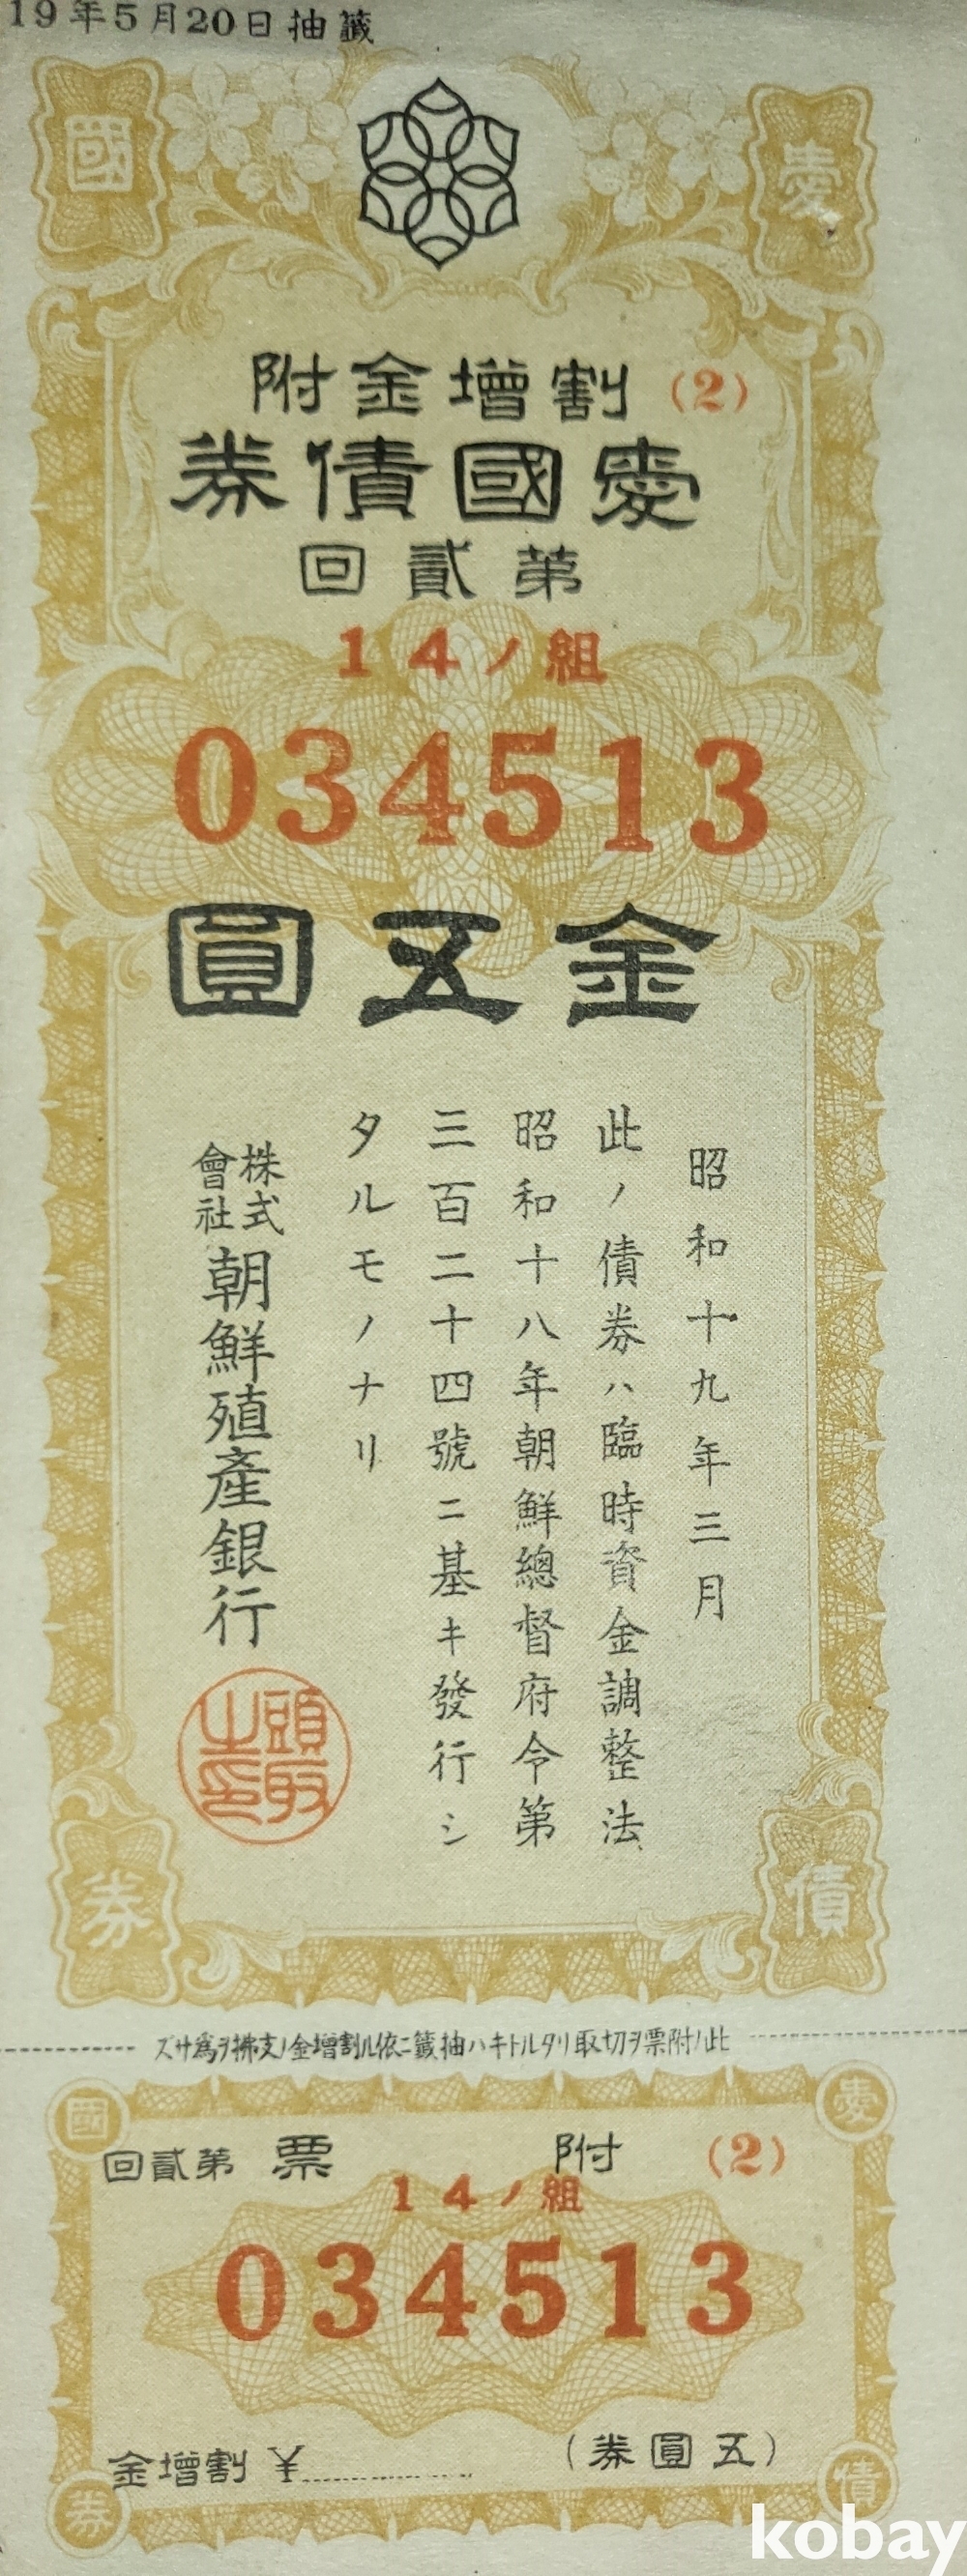 19年5月20日抽籤
愛國
(2) 割增金附
愛國債券
第貳回
14ノ組
034513
金五圓
昭和十九年三月
此ノ債券ハ臨時資金調整法
昭和十八年朝鮮總督府令第
三百二十四號ニ基キ發行シ
タルモノナリ
株式會社朝鮮殖產銀行
頭取之印
債券
此ノ附票ヲ切取リタルトキハ抽籤ニ依ル割增金ノ支拂ヲ爲サズ
愛國
(2) 附票 第貳回
14ノ組
034513
(五圓券)
割增金 ¥
債券
kobay